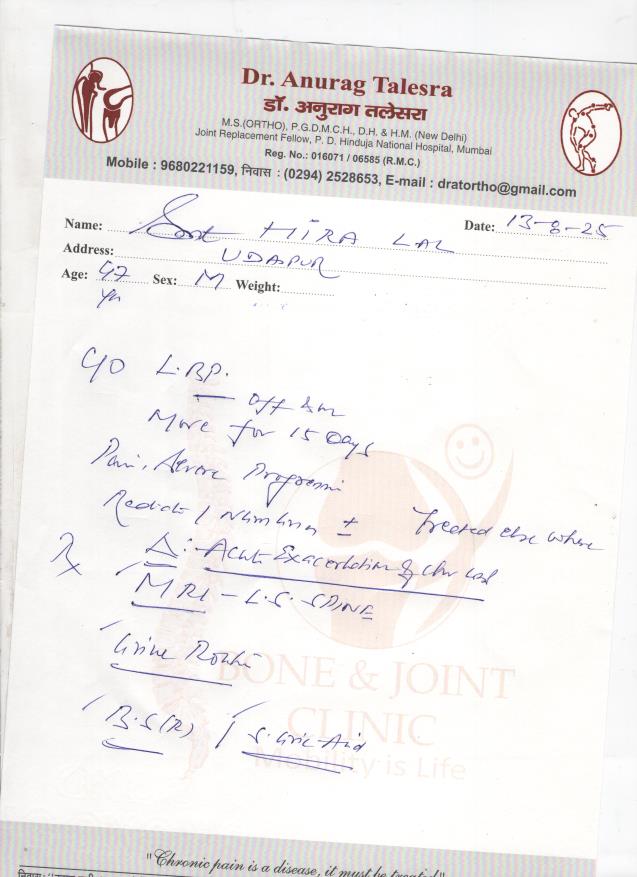 Dr. Anurag Talesra
डॉ. अनुराग तलेसरा
M.S.(ORTHO), P.G.D.M.C.H., D.H. & H.M. (New Delhi)
Joint Replacement Fellow, P. D. Hinduja National Hospital, Mumbai
Reg. No.: 016071 / 06585 (R.M.C.)
Mobile : 9680221159, निवास : (0294) 2528653, E-mail : dratortho@gmail.com
Name: HIRA LAL Date: 13-8-25
Address: UDAIPUR
Age: 47 yr Sex: M Weight:
C/O L.BP.
— off &
More for 15 Days
Pain, Severe Progressi
Radiat / Numbness ± Treated else where
Δ:- Acute Exacerbation of
Rx MRI - L.S. SPINE
Urine Routi
B.S(R) / S. Uric Acid
BONE & JOINT
CLINIC
Mobility is Life
"Chronic pain is a disease, it must be treated"